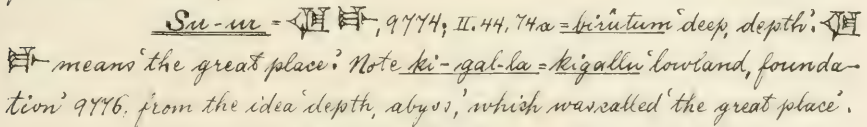 Su-ur = 𒆠𒃲, 9774; II. 44, 74a = birûtum 'deep, depth'. 𒆠
𒃲 means 'the great place'. Note ki-gal-la = kigallu 'lowland, founda-
tion' 9776, from the idea 'depth, abyss,' which was called 'the great place'.